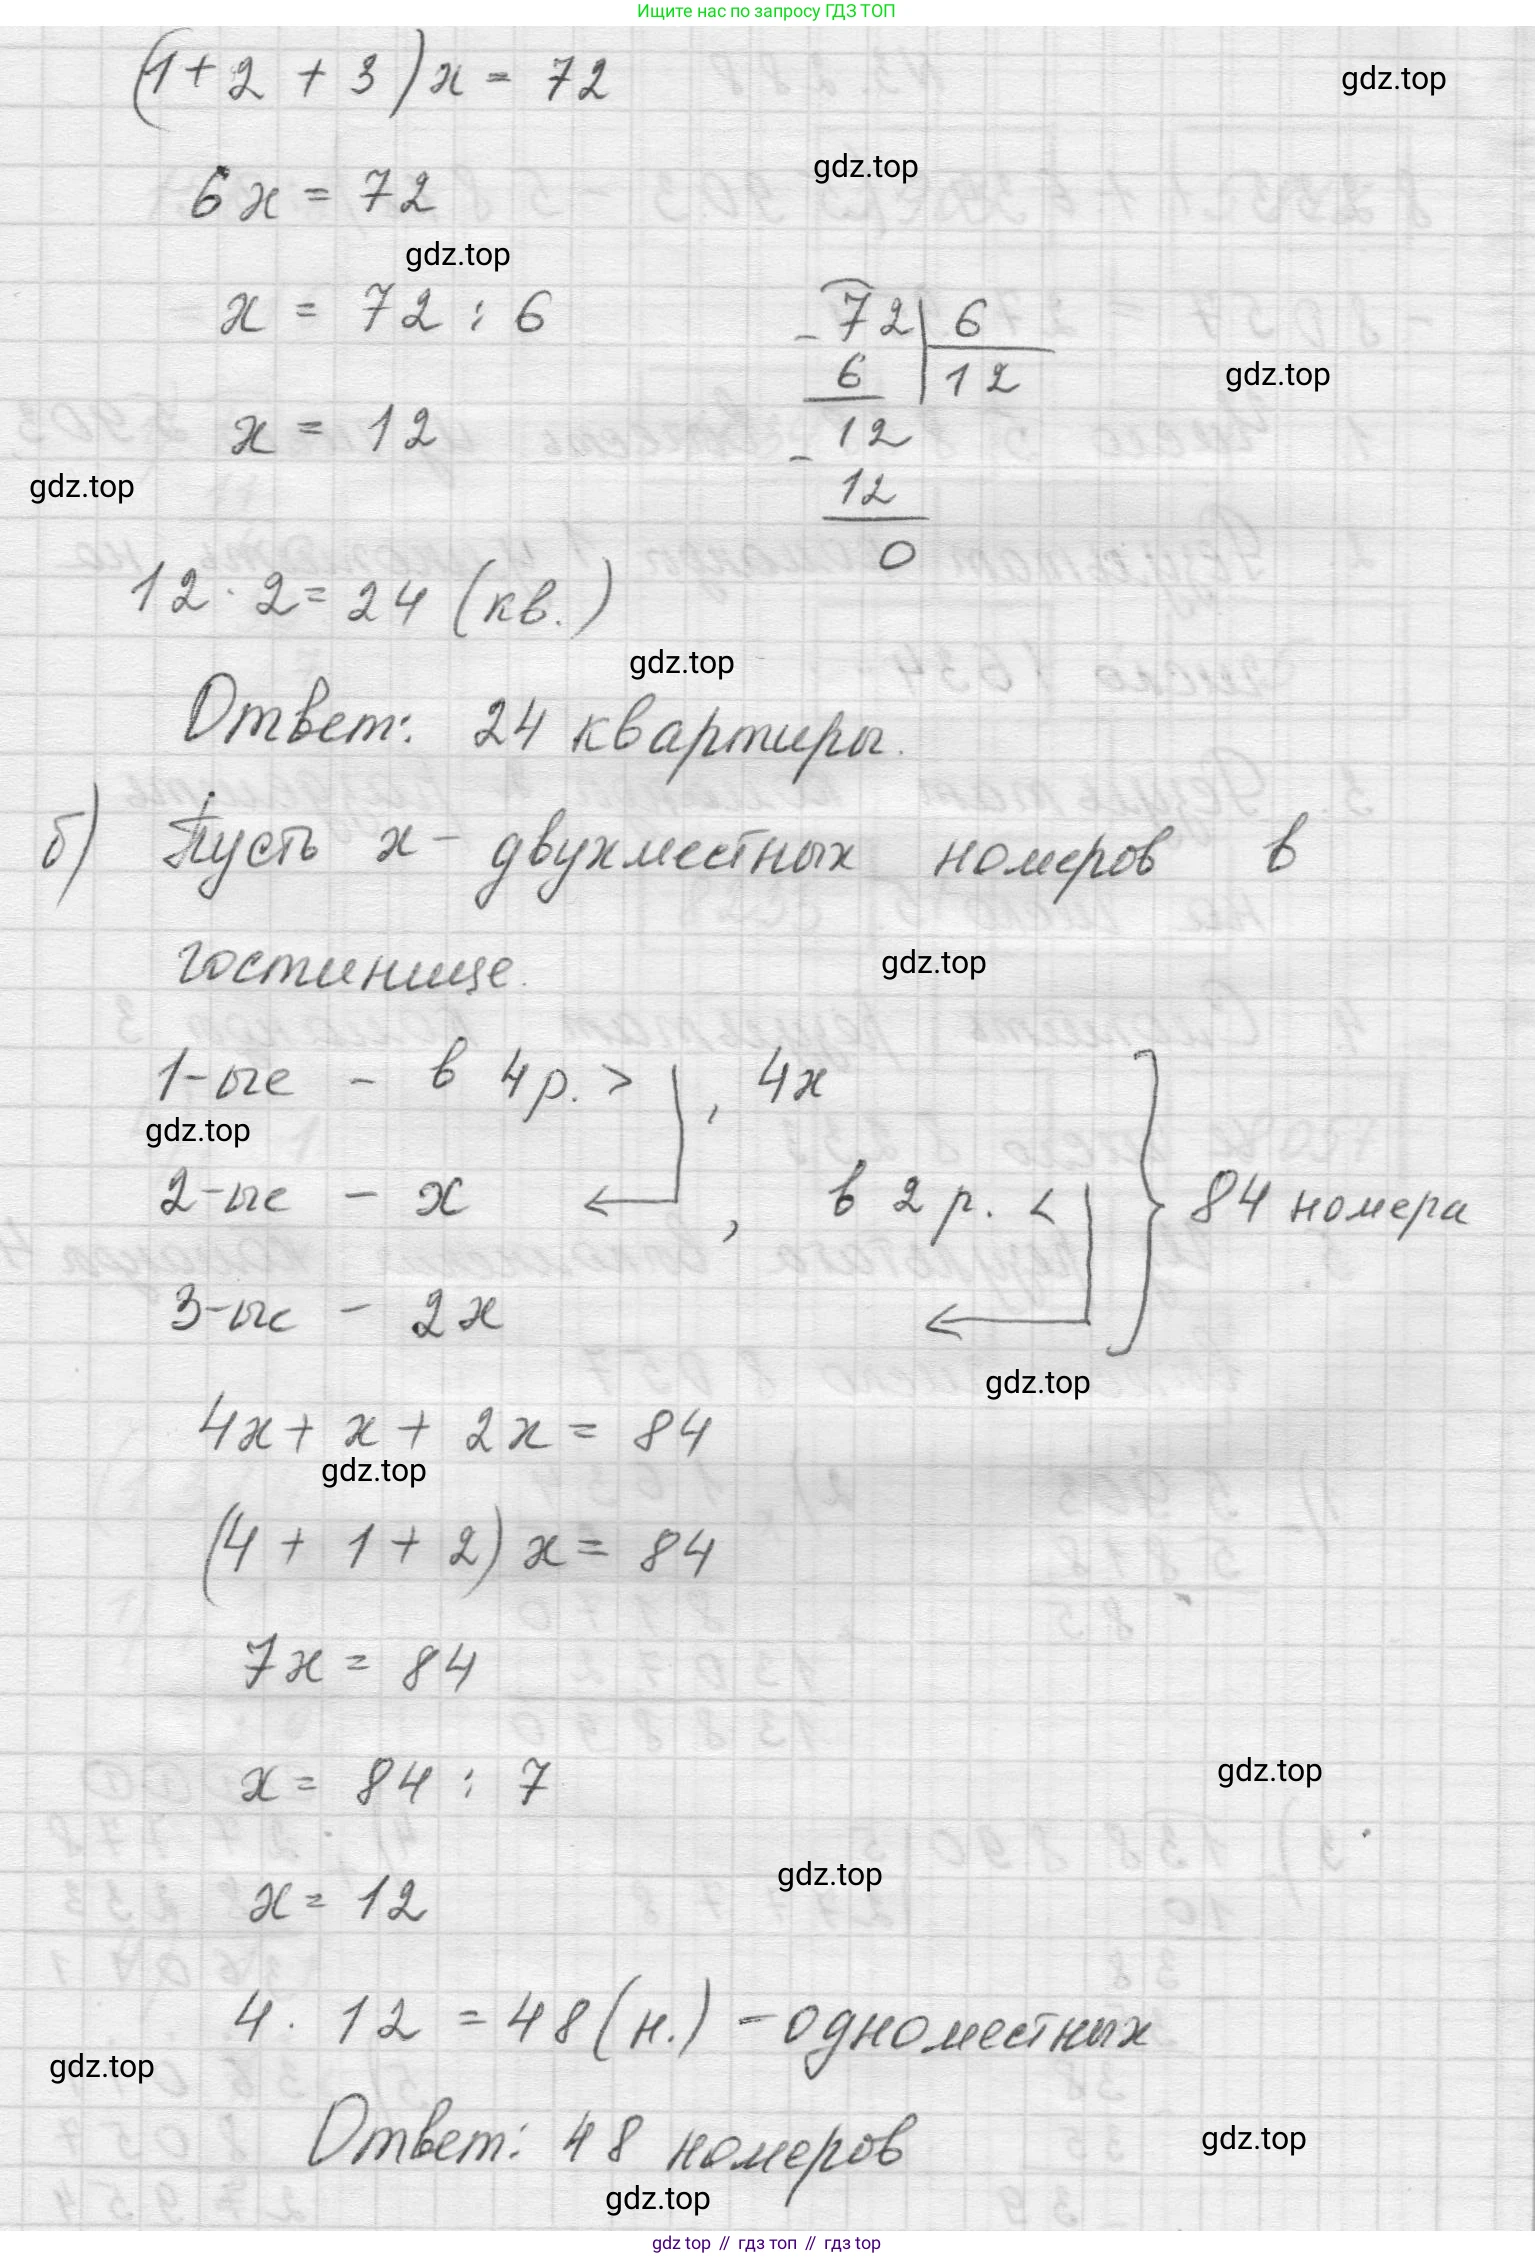 Ищите нас по запросу ГДЗ ТОП
(1 + 2 + 3)x = 72
gdz.top
gdz.top
6x = 72
gdz.top
x = 72 : 6
72 | 6
- 6 | 12
gdz.top
x = 12
- 12
gdz.top
12
0
12 · 2 = 24 (кв.)
gdz.top
Ответ: 24 квартиры.
б) Пусть x - двухместных номеров в
гостинице.
gdz.top
1-ые - в 4 р. > , 4x
gdz.top
2-ые - x , в 2 р. < } 84 номера
3-ые - 2x
gdz.top
4x + x + 2x = 84
gdz.top
(4 + 1 + 2) x = 84
7x = 84
gdz.top
x = 84 : 7
gdz.top
x = 12
4 · 12 = 48 (н.) - одноместных
gdz.top
Ответ: 48 номеров
gdz.top
gdz.top
gdz top // гдз топ // gdz top